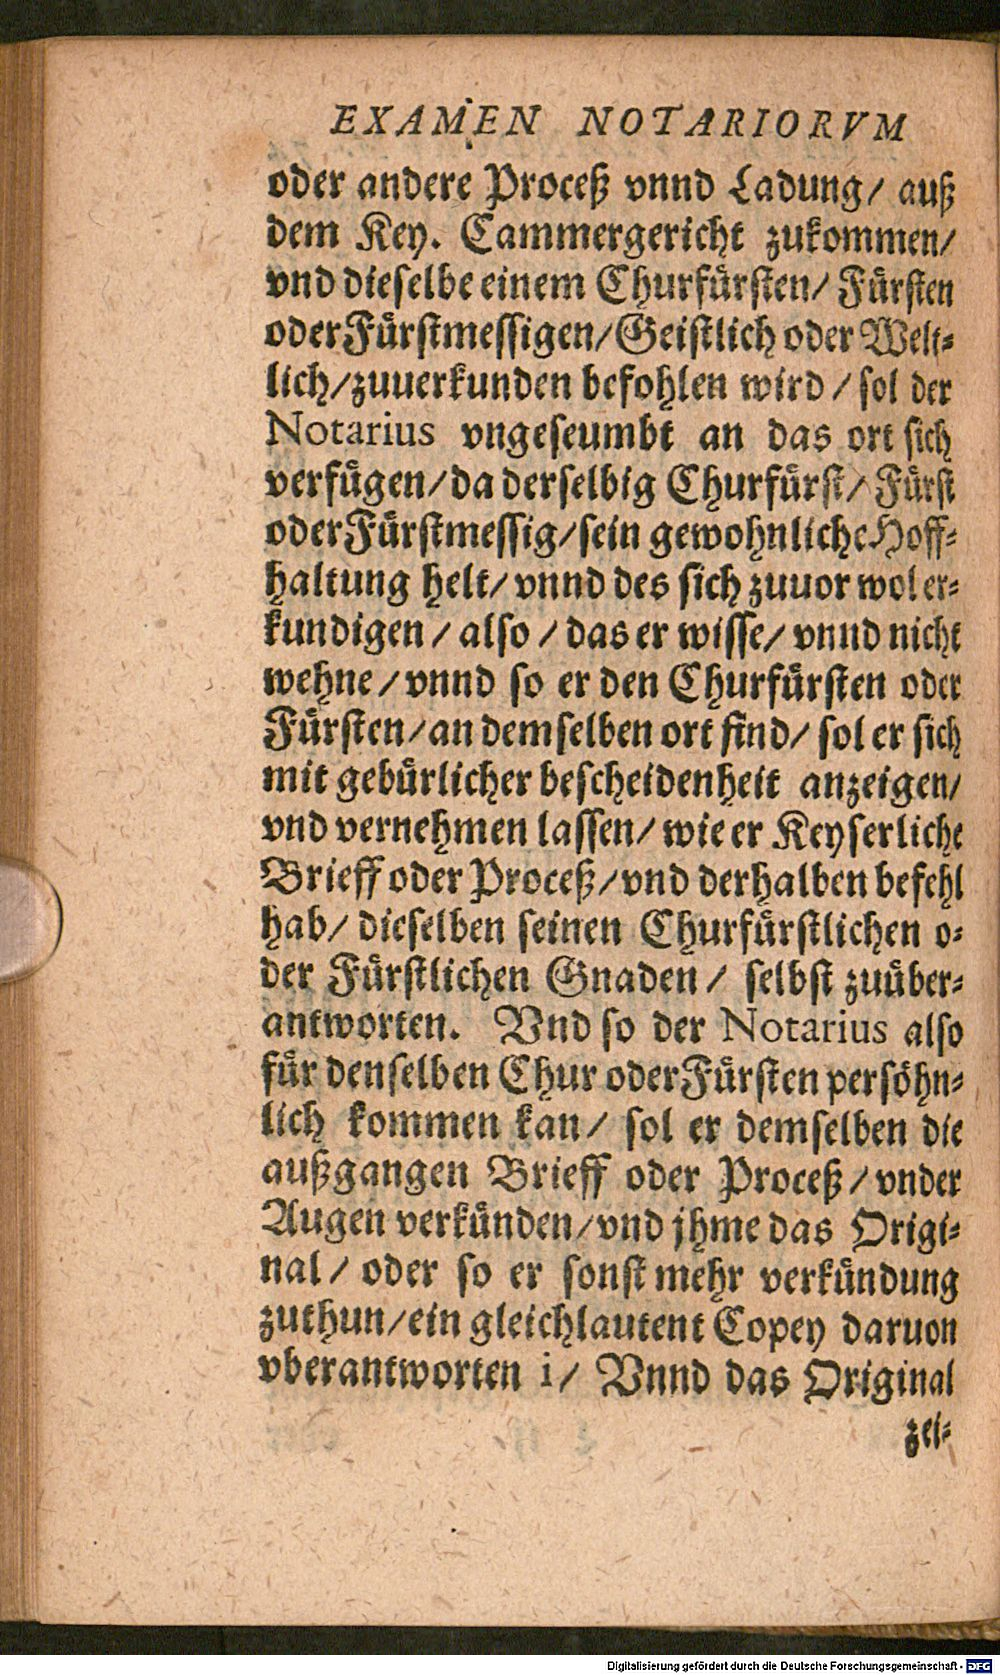 EXAMEN NOTARIORVM
oder andere Proceß vnnd Ladung/ auß
dem Key. Cammergericht zukommen/
vnd dieselbe einem Churfürsten/ Fürsten
oder Fürstmessigen/ Geistlich oder Welt-
lich/ zuuerkunden befohlen wird / sol der
Notarius vngeseumbt an das ort sich
verfügen/ da derselbig Churfürst/ Fürst
oder Fürstmessig/ sein gewohnliche Hoff-
haltung helt/ vnnd des sich zuuor wol er-
kundigen / also / das er wisse/ vnnd nicht
wehne / vnnd so er den Churfürsten oder
Fürsten/ an demselben ort find/ sol er sich
mit gebürlicher bescheidenheit anzeigen/
vnd vernehmen lassen/ wie er Keyserliche
Brieff oder Proceß/ vnd derhalben befehl
hab/ dieselben seinen Churfürstlichen o-
der Fürstlichen Gnaden / selbst zuüber-
antworten. Vnd so der Notarius also
für denselben Chur oder Fürsten persöhn-
lich kommen kan/ sol er demselben die
außgangen Brieff oder Proceß / vnder
Augen verkünden/ vnd jhme das Origi-
nal / oder so er sonst mehr verkündung
zuthun/ ein gleichlautent Copey daruon
vberantworten i/ Vnnd das Original
zei-
Digitalisierung gefördert durch die Deutsche Forschungsgemeinschaft - DFG